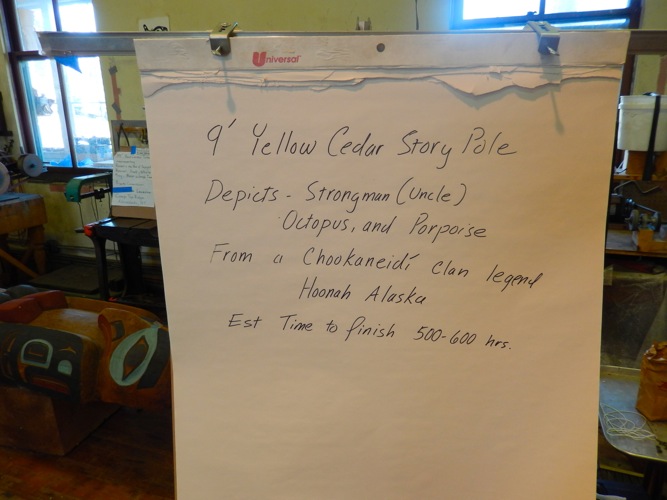 Universal
9' Yellow Cedar Story Pole
Depicts - Strongman (Uncle)
Octopus, and Porpoise
From a Chookaneidí clan legend
Hoonah Alaska
Est Time to finish 500-600 hrs.